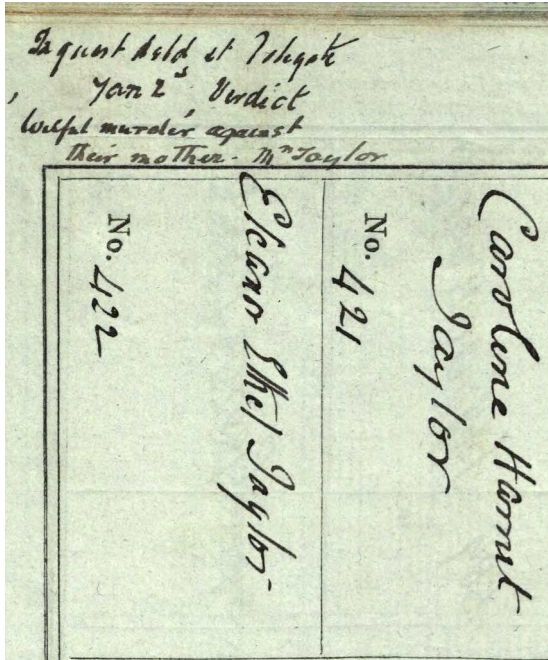 Inquest held at
Jan 2nd, Verdict
Wilful murder against
their mother - Mrs Taylor
Caroline Harriet
Taylor
No. 421
Eleanor Ethel Taylor
No. 422